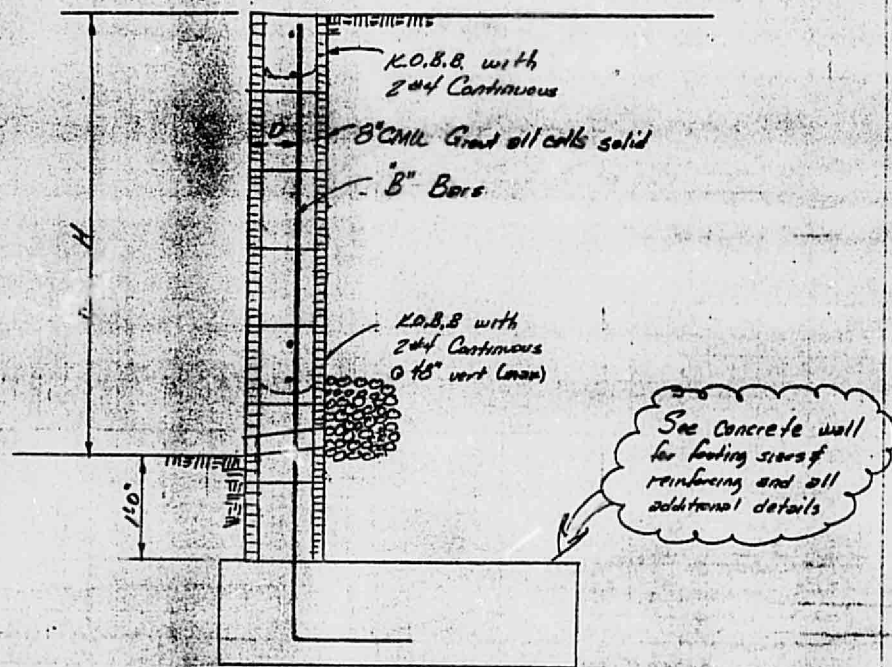 K.O.B.B. with
2 #4 Continuous
8" CMU Grout all cells solid
D
"B" Bars
H
K.O.B.B with
2 #4 Continuous
@ 48" vert (max)
See Concrete wall
for footing sizes &
reinforcing and all
additional details
1'-0"